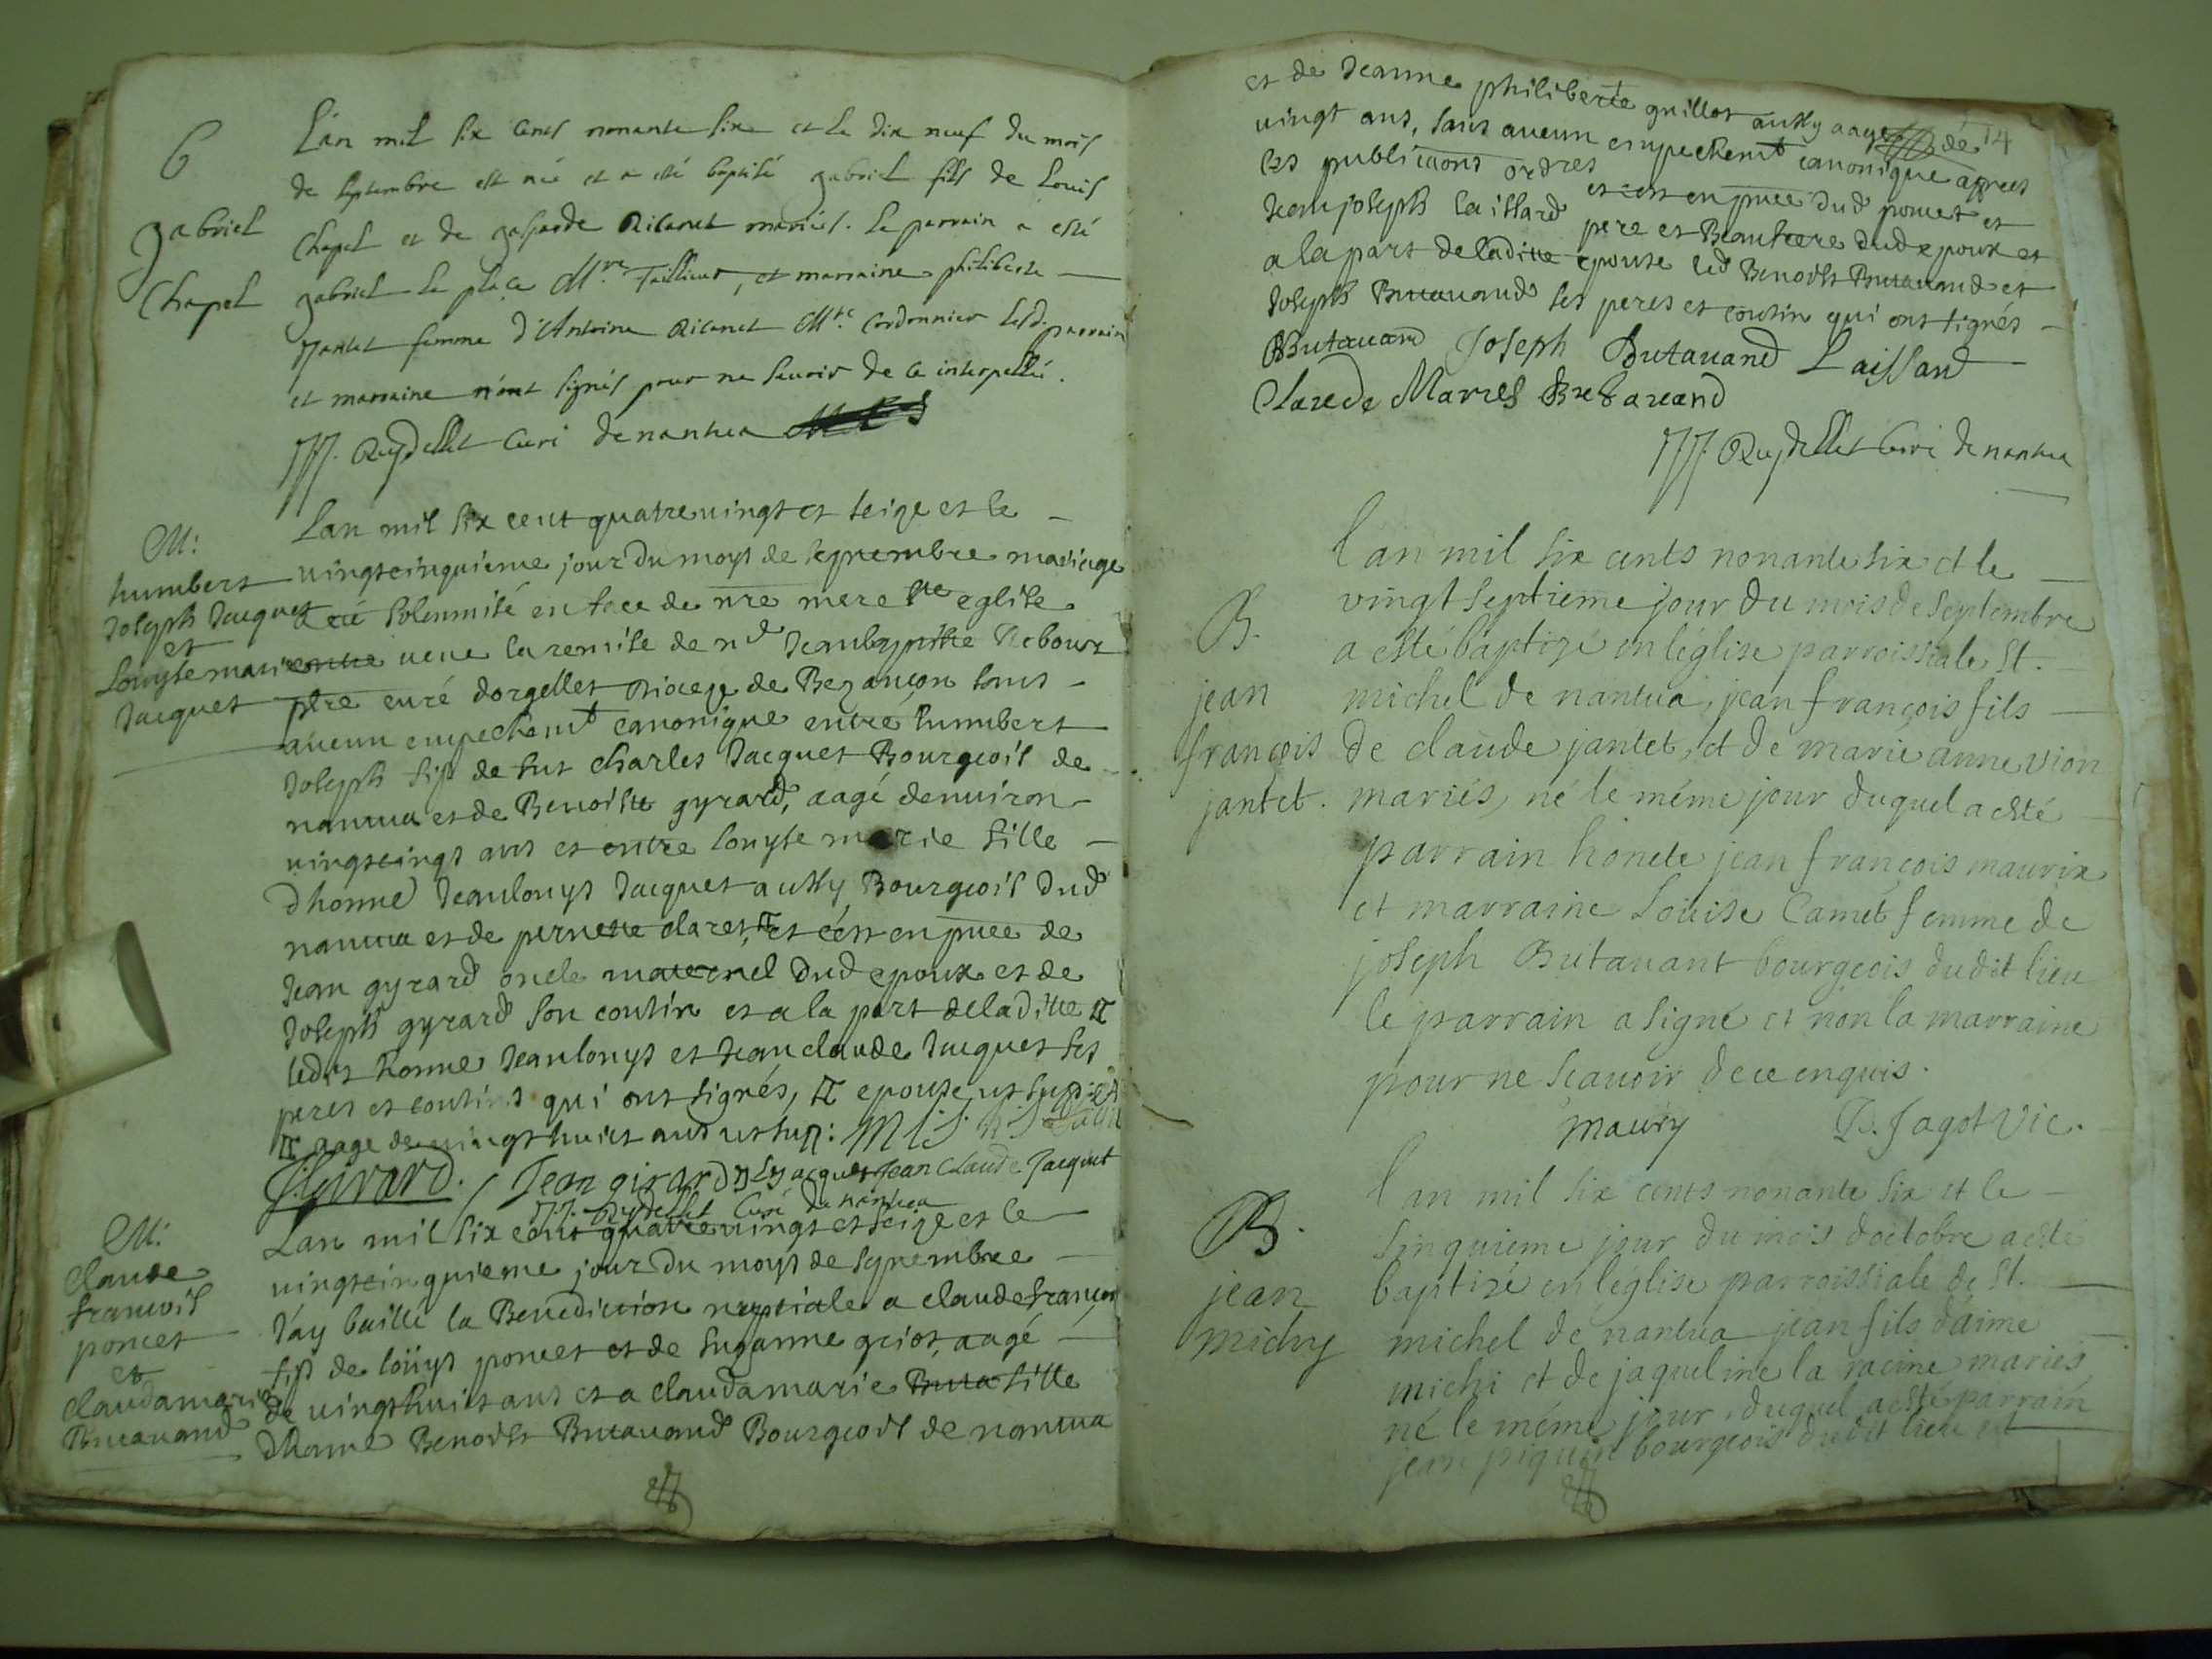 B
gabriel
Chapel
L'an mil six cents nonante six et le dix neuf du mois
de septembre est né et a été baptisé gabriel fils de Louis
Chapel et de gasparde Ricanet mariés. Le parrain a esté
gabriel la place Mtre Taillieur, et marraine philiberte
Jantet femme d'Antoine Ricanet Mtre Cordonnier lesd. parrain
et marraine n'ont signés pour ne scavoir de ce interpellé.
JJ. Reydellet Curé de nantua
M:
humbert
Joseph Jacquet
et
Louyse marie
Jacquet
Lan mil six cent quatrevingt et seize et le
vingtcinquieme jour du moys de septembre mariage
a eté solemnisé en face de nre mere ste eglise
veue la remise de Rd Jeanbaptiste Rebour
ptre curé dorgellet dioceze de Bezançon sans
aucun empechemt canonique entre humbert
Joseph fils de fut charles Jacquet Bourgeois de
nantua et de Benoiste gyrard, aagé denuiron
vingtcinq ans et entre Louyse marie fille
dhonne Jeanlouys Jacquet aussy Bourgeois dud
nantua et de pernette claret, et cest en pnce de
Jean gyrard oncle maternel dud epoux et de
Joseph gyrard son cousin et a la part deladitte
ledit honne Jeanlouys et Jeanclaude Jacquet ses
peres et cousins qui ont signés, epouse ut sup
aage de vingt huict ans ut sup:
J. Girard. Jean girard JLJacquet Jean Claude Jacquet
JJ. Reydellet Curé de nantua
M:
Claude
francois
poncet
et
claudamarie
Butauand
Lan mil six cent quatrevingt et seize et le
vingtcinquieme jour du moys de septembre
Jay baillé la Benediction nuptiale a claudefrancois
fils de loüys poncet et de Suzanne griot, aagé
de vingthuict ans et a claudamarie Buta fille
dhonne Benoist Butauand Bourgeois de nantua
14
et de Jeanne philiberte guillot aussy aagé de
vingt ans, sans aucun empechemt canonique apprès
les publications ordres et cest en pnce dud poncet et
Jeanjoseph laissard pere et Beaufrere dud epoux et
a la part de laditte epouse led Benoist Butauand et
Joseph Butauand ses peres et cousin qui ont signés
BButauand Joseph Butauand Laissard
Claude Marres Butauand
JJ. Reydellet Curé de nantua
B.
jean
françois
jantet.
l'an mil six cents nonante six et le
vingt septieme jour du mois de septembre
a esté baptizé en léglise parroissiale St.
michel de nantua, jean françois fils
de claude jantet, et de marie anne vion
mariés, né le méme jour duquel a esté
parrain honete jean françois maurix
et marraine Louise Camet femme de
joseph Butavant bourgeois dudit lieu
le parrain a signé et non la marraine
pour ne scavoir de ce enquis.
maury D. Jagot Vic.
B.
jean
michy
l'an mil six cents nonante six et le
sinquieme jour du mois doctobre a esté
baptizé en léglise parroissiale de St.
michel de nantua jean fils daime
michi et de jaqueline la racine mariés
né le méme jour, duquel a esté parrain
jean piquin bourgeois dudit lieu et